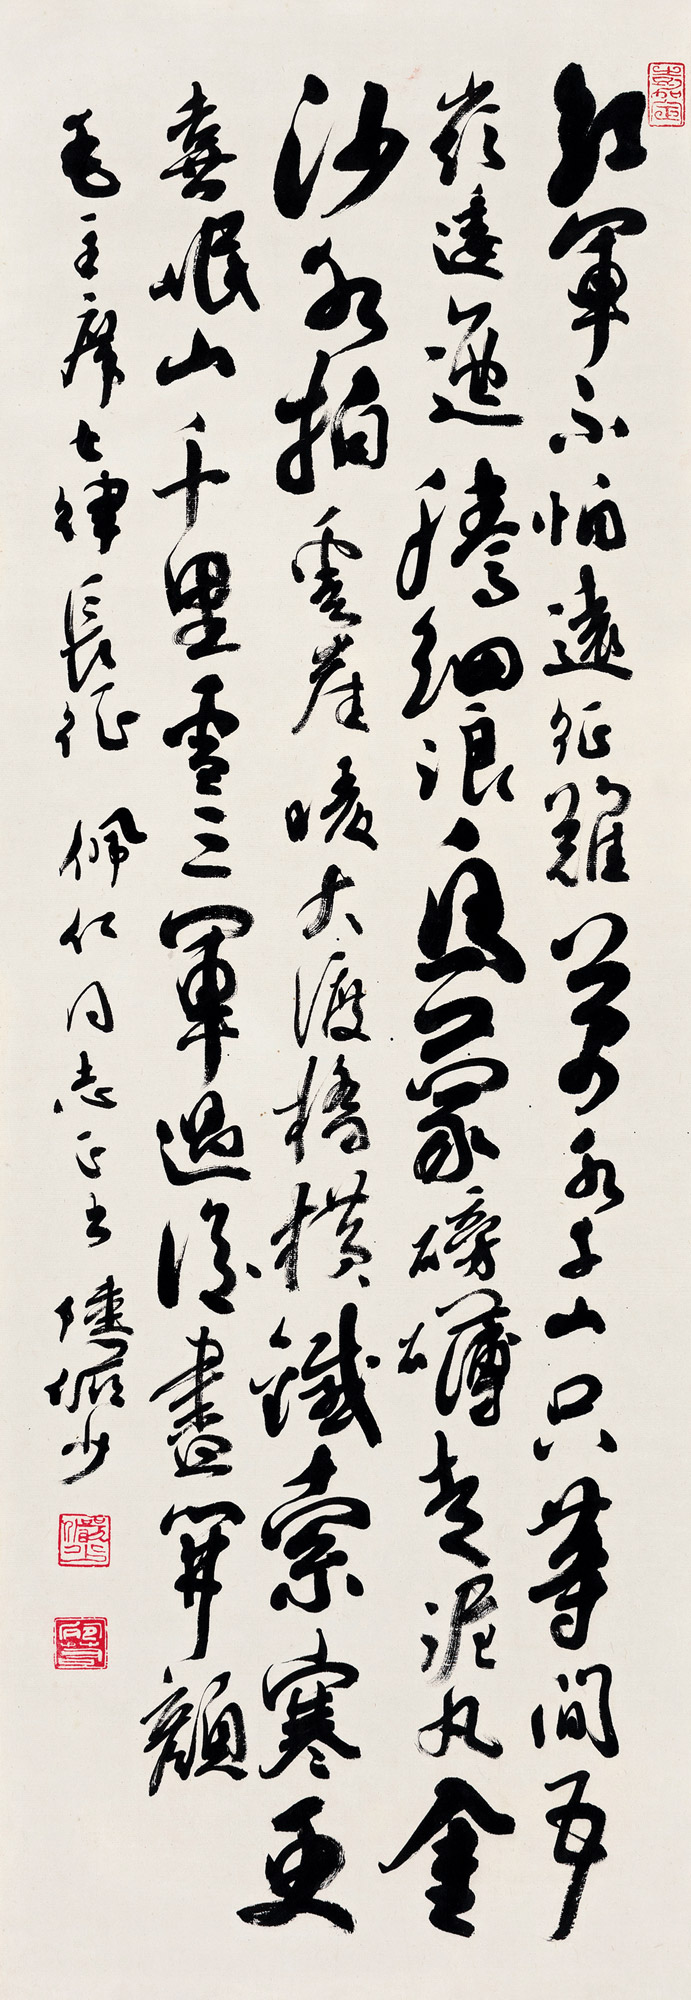 嘉定
紅軍不怕遠征難萬水千山只等間五
嶺逶迤騰細浪烏蒙磅礴走泥丸金
沙水拍雲崖暖大渡橋橫鐵索寒更
喜岷山千里雪三軍過後盡開顏
毛主席七律長征 佩仁同志正書 陸儼少